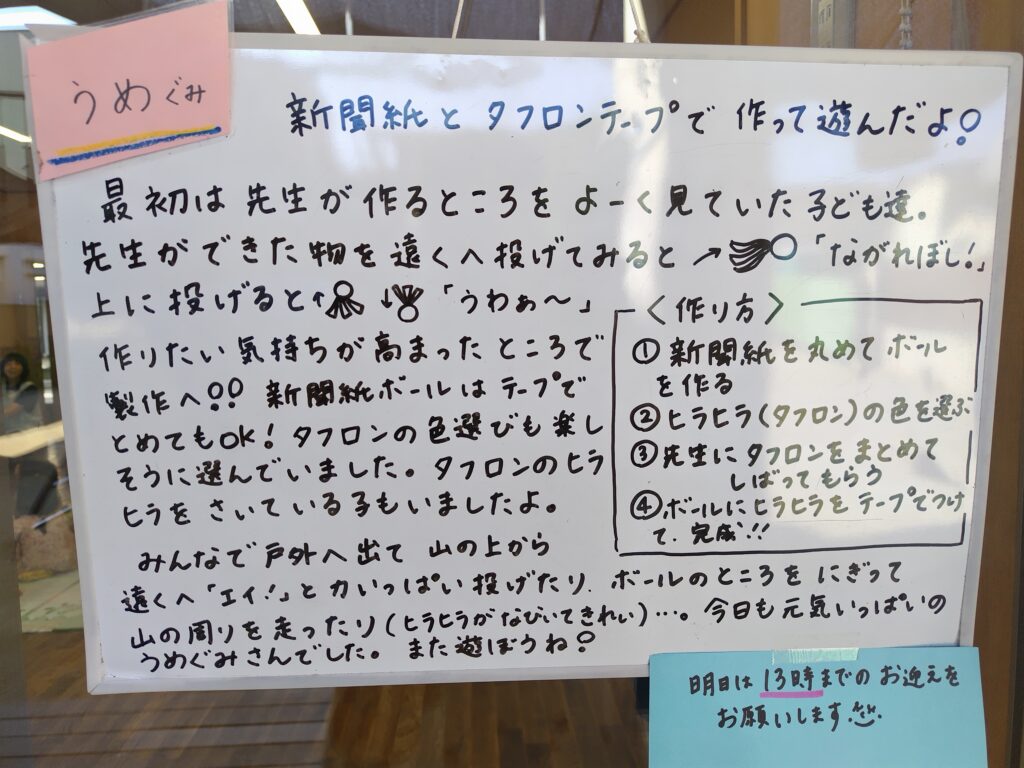 うめぐみ
新聞紙とタフロンテープで作って遊んだよ!
最初は先生が作るところをよーく見ていた子ども達。
先生ができた物を遠くへ投げてみると→「ながれぼし!」
上に投げると↑↓「うわぁ〜」
作りたい気持ちが高まったところで
製作へ!!新聞紙ボールはテープで
とめてもOK!タフロンの色選びも楽し
そうに選んでいました。タフロンのヒラ
ヒラをさいている子もいましたよ。
<作り方>
①新聞紙を丸めてボール
を作る
②ヒラヒラ(タフロン)の色を選ぶ
③先生にタフロンをまとめて
しばってもらう
④ボールにヒラヒラをテープでつけ
て、完成!!
みんなで戸外へ出て山の上から
遠くへ「エイ!」と力いっぱい投げたり、ボールのところをにぎって
山の周りを走ったり(ヒラヒラがなびいてきれい)…。今日も元気いっぱいの
うめぐみさんでした。また遊ぼうね!
明日は13時までのお迎えを
お願いします。